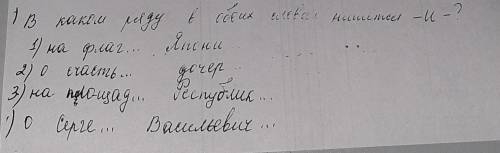 1) В каком ряду в обоих словах пишется -и-?
1) на флаг... Япони ...
2) о счасть... дочер...
3) на площад... Республик...
) о Серге... Васильевич...